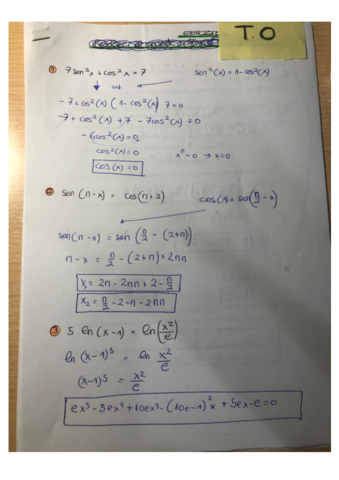 T.O
① 7sen²x + cos²x = 7      sen²(x) = 1 - cos²(x)
- 7 + cos²(x) (1 - cos²(x) · 7 = 0
- 7 + cos²(x) + 7 - 7cos²(x) = 0
- 6cos²(x) = 0
cos²(x) = 0      xⁿ = 0 → x = 0
cos(x) = 0
② sen(π-x) = cos(π+2)      cos(x) = sen(π/2 - x)
sen(π-x) = sen(π/2 - (2+π))
π - x = π/2 - (2+π) + 2πn
x₁ = 2π - 2πn + 2 - π/2
x₂ = π/2 - 2 - π - 2πn
③ 5 ln(x-1) = ln(x²/e)
ln(x-1)⁵ = ln x²/e
(x-1)⁵ = x²/e
ex⁵ - 5ex⁴ + 10ex³ - (10e-1)²x + 5ex - e = 0